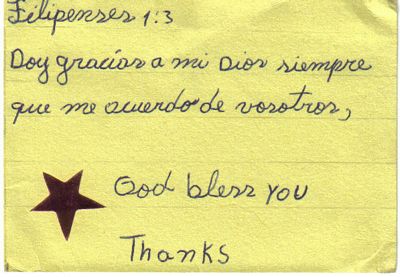 Filipenses 1:3
Doy gracias a mi Dios siempre
que me acuerdo de vosotros,
God bless you
Thanks